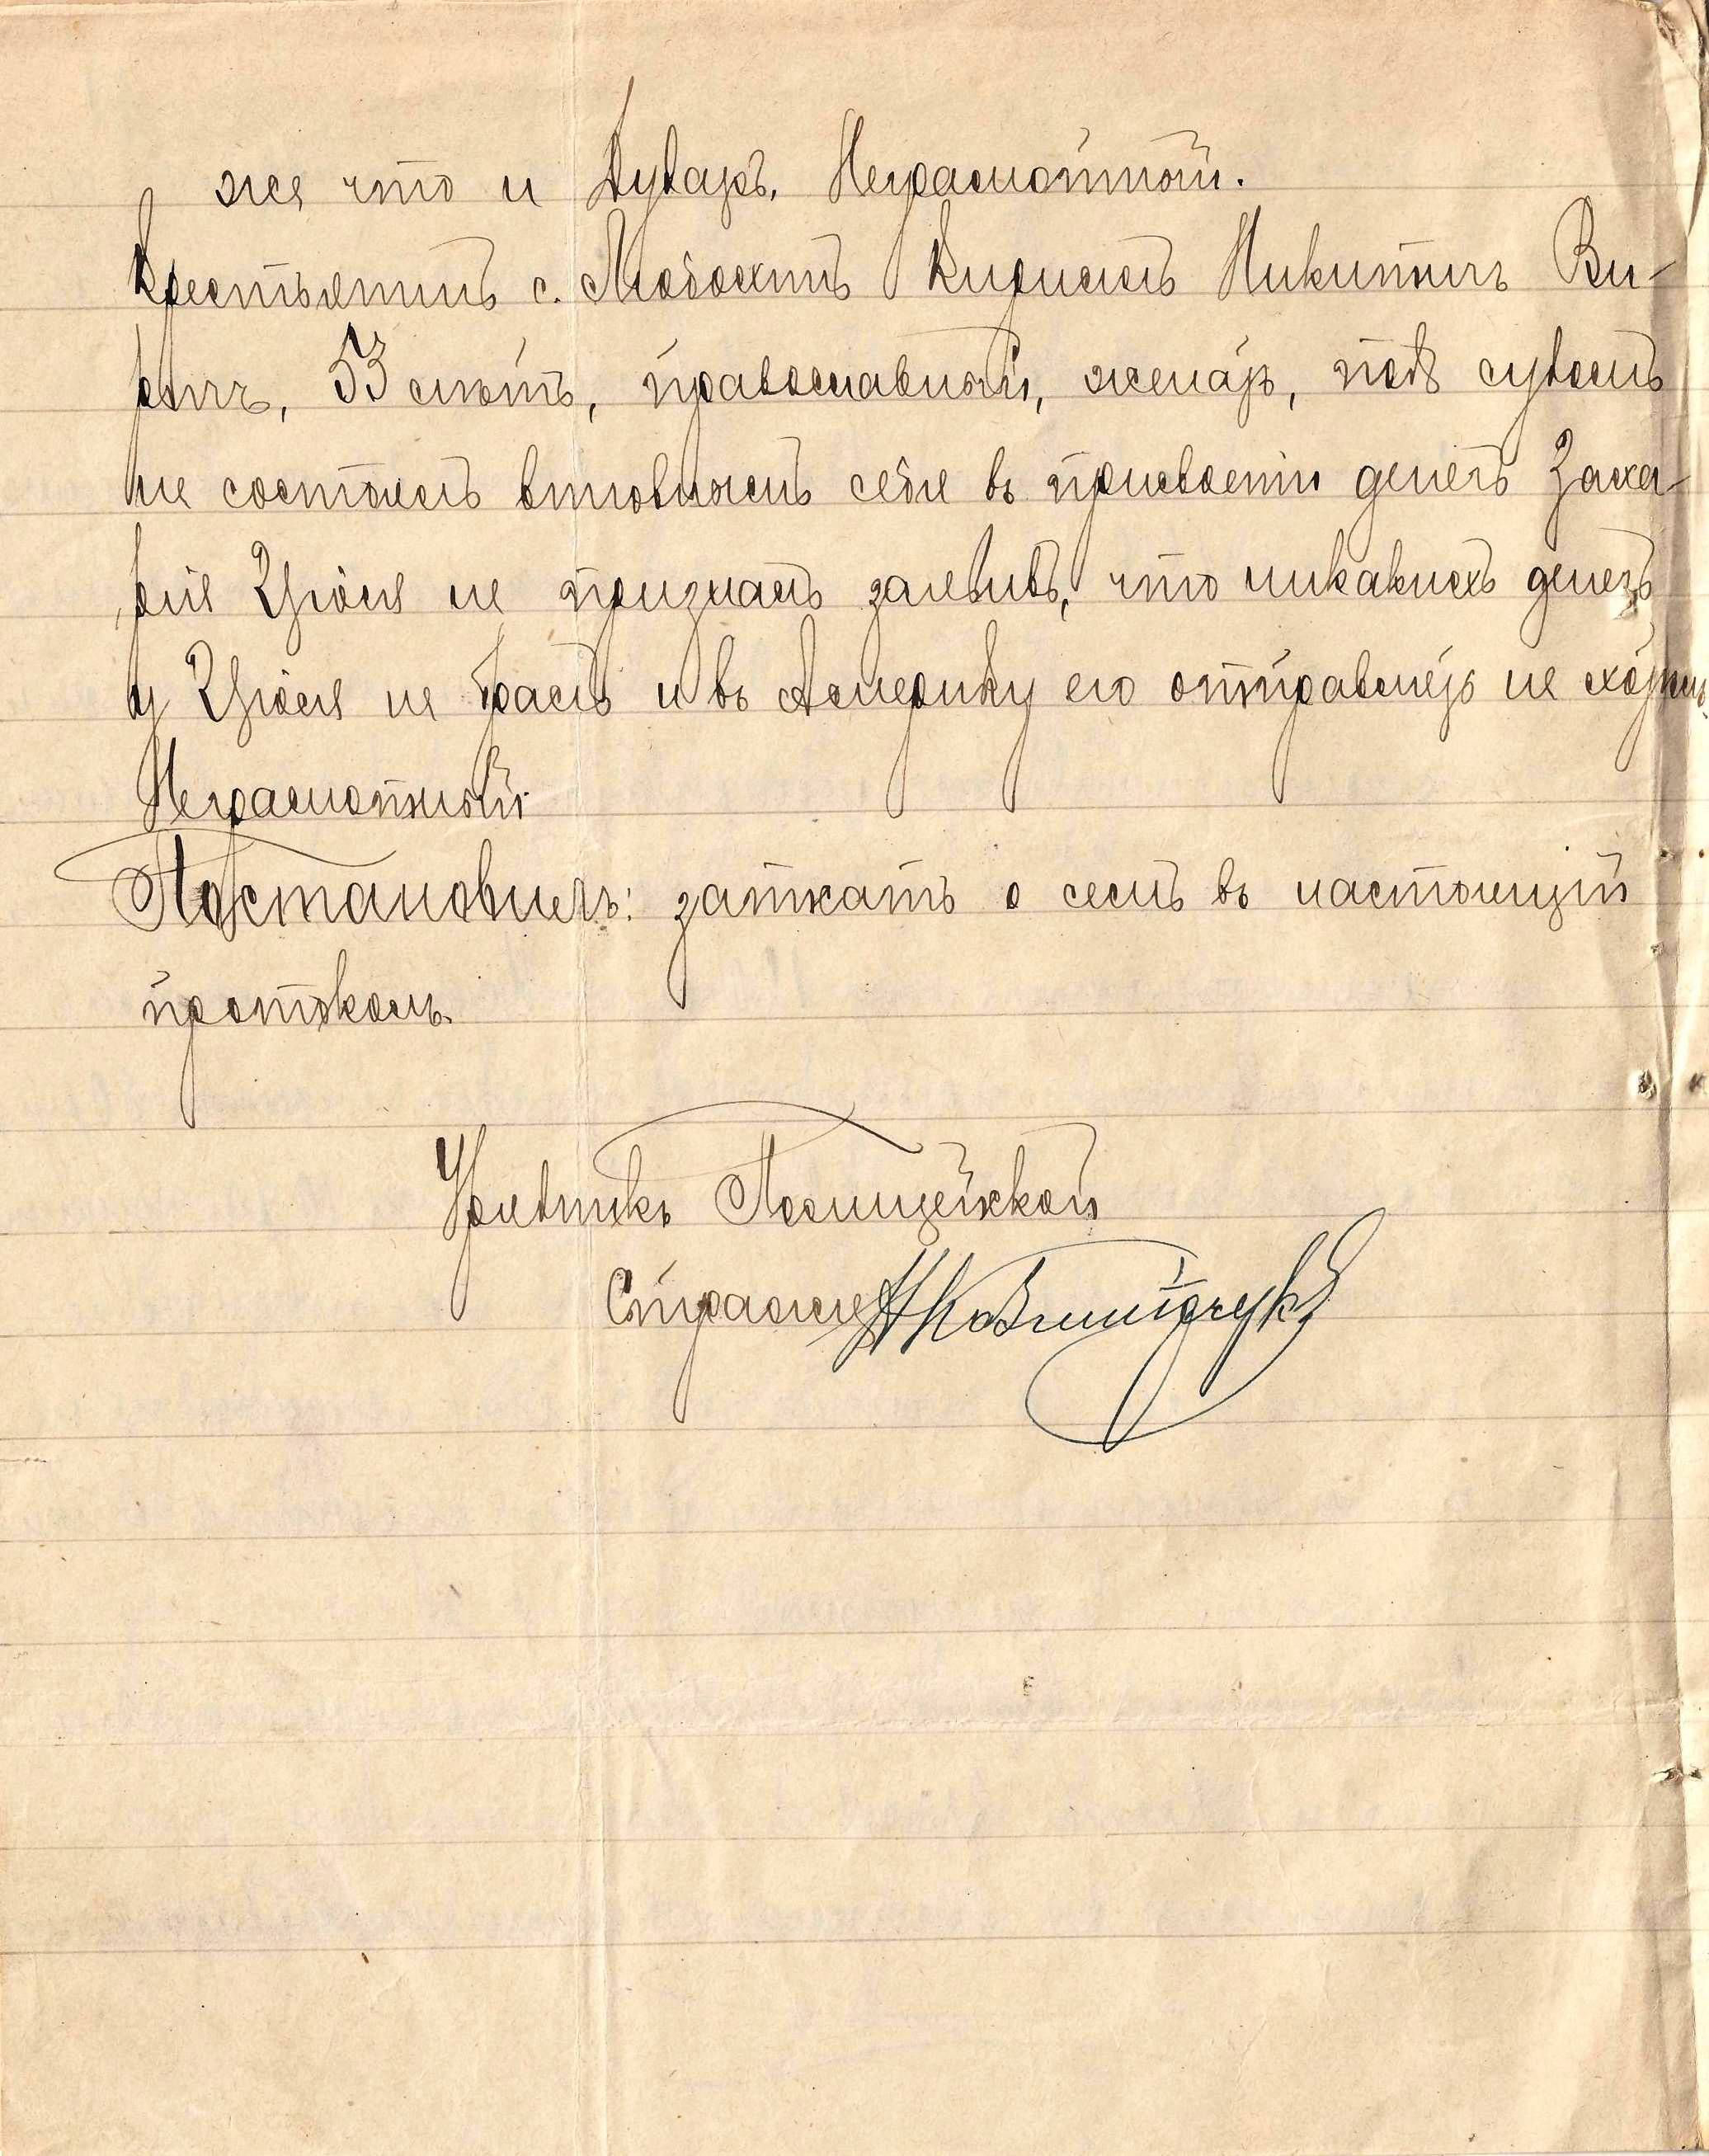 же что и Дударъ. Неграмотной.
Крестьянинъ с. Любохинъ Кирилъ Никитичъ Ви-
ричъ, 53 лѣтъ, православный, женатъ, подъ судомъ
не состоялъ виновнымъ себя въ присвоеніи денегъ Заха-
рія не призналъ заявивъ, что никакихъ денегъ
у не бралъ и въ Америку его отправлять не
Неграмотный.
Постановилъ: записать о семъ въ настоящій
протоколъ.
Урядникъ Полицейской
Стражи